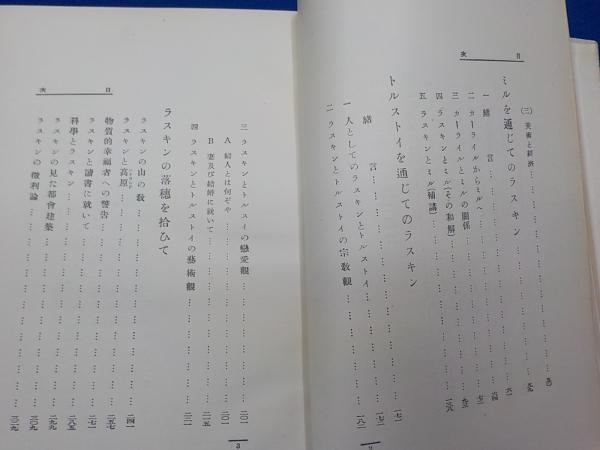 目次
(三) 美術と經濟
ミルを通じてのラスキン
一 緒言
二 カーライルからミルへ
三 カーライルとミルの關係
四 ラスキンとミル(その和解)
五 ラスキンとミル(補講)
トルストイを通じてのラスキン
緒言 一七一
一 人としてのラスキンとトルストイ 一七三
二 ラスキンとトルストイの宗敎觀 一八三
目次
三 ラスキンとトルストイの戀愛觀 二〇一
A 婦人とは何ぞや 二〇一
B 妻及び結婚に就いて 二一五
四 ラスキンとトルストイの藝術觀 二二一
ラスキンの落穗を拾ひて
ラスキンの山の敎 二四一
ラスキンと高原 二五七
物質的幸福者への警告 二七一
ラスキンと讀書に就いて 二八五
科學とラスキン 二九九
ラスキンの見た都會建築 三〇九
ラスキンの徴利論 三一九
3